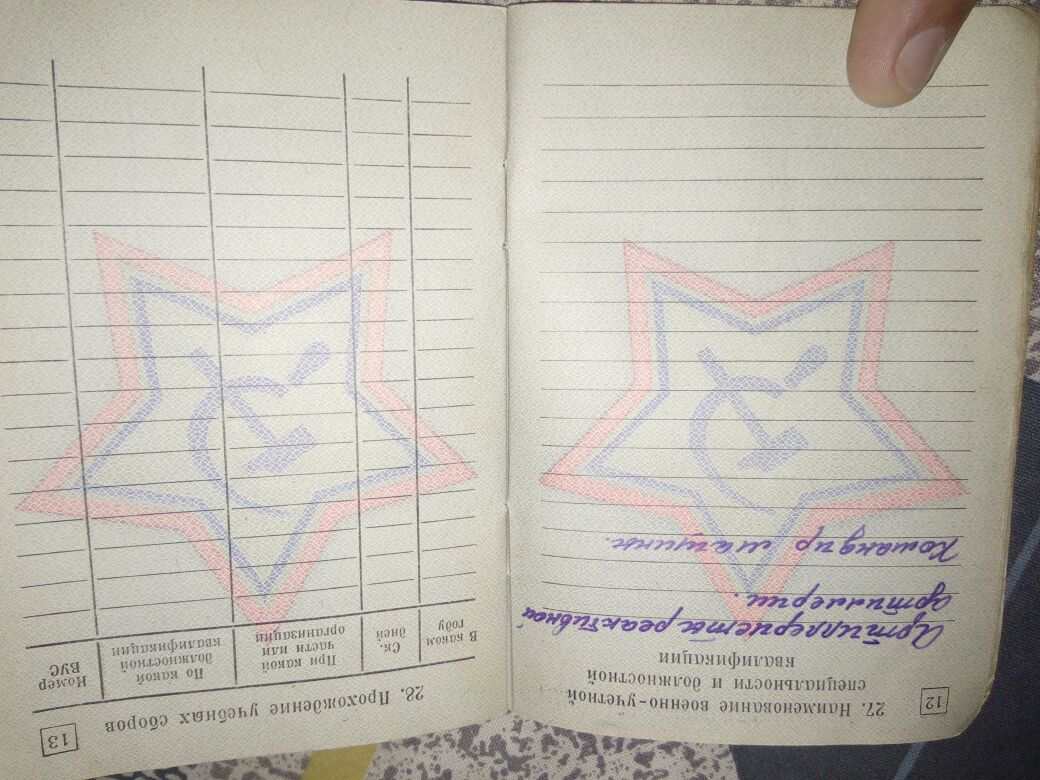 12
27. Наименование военно-учетной
специальности и должностной
квалификации
Артиллеристы реактивной
артиллерии.
Командир машины.
13
28. Прохождение учебных сборов
В каком
году
Ск.
дней
При какой
части или
организации
По какой
должностной
квалификации
Номер
ВУС